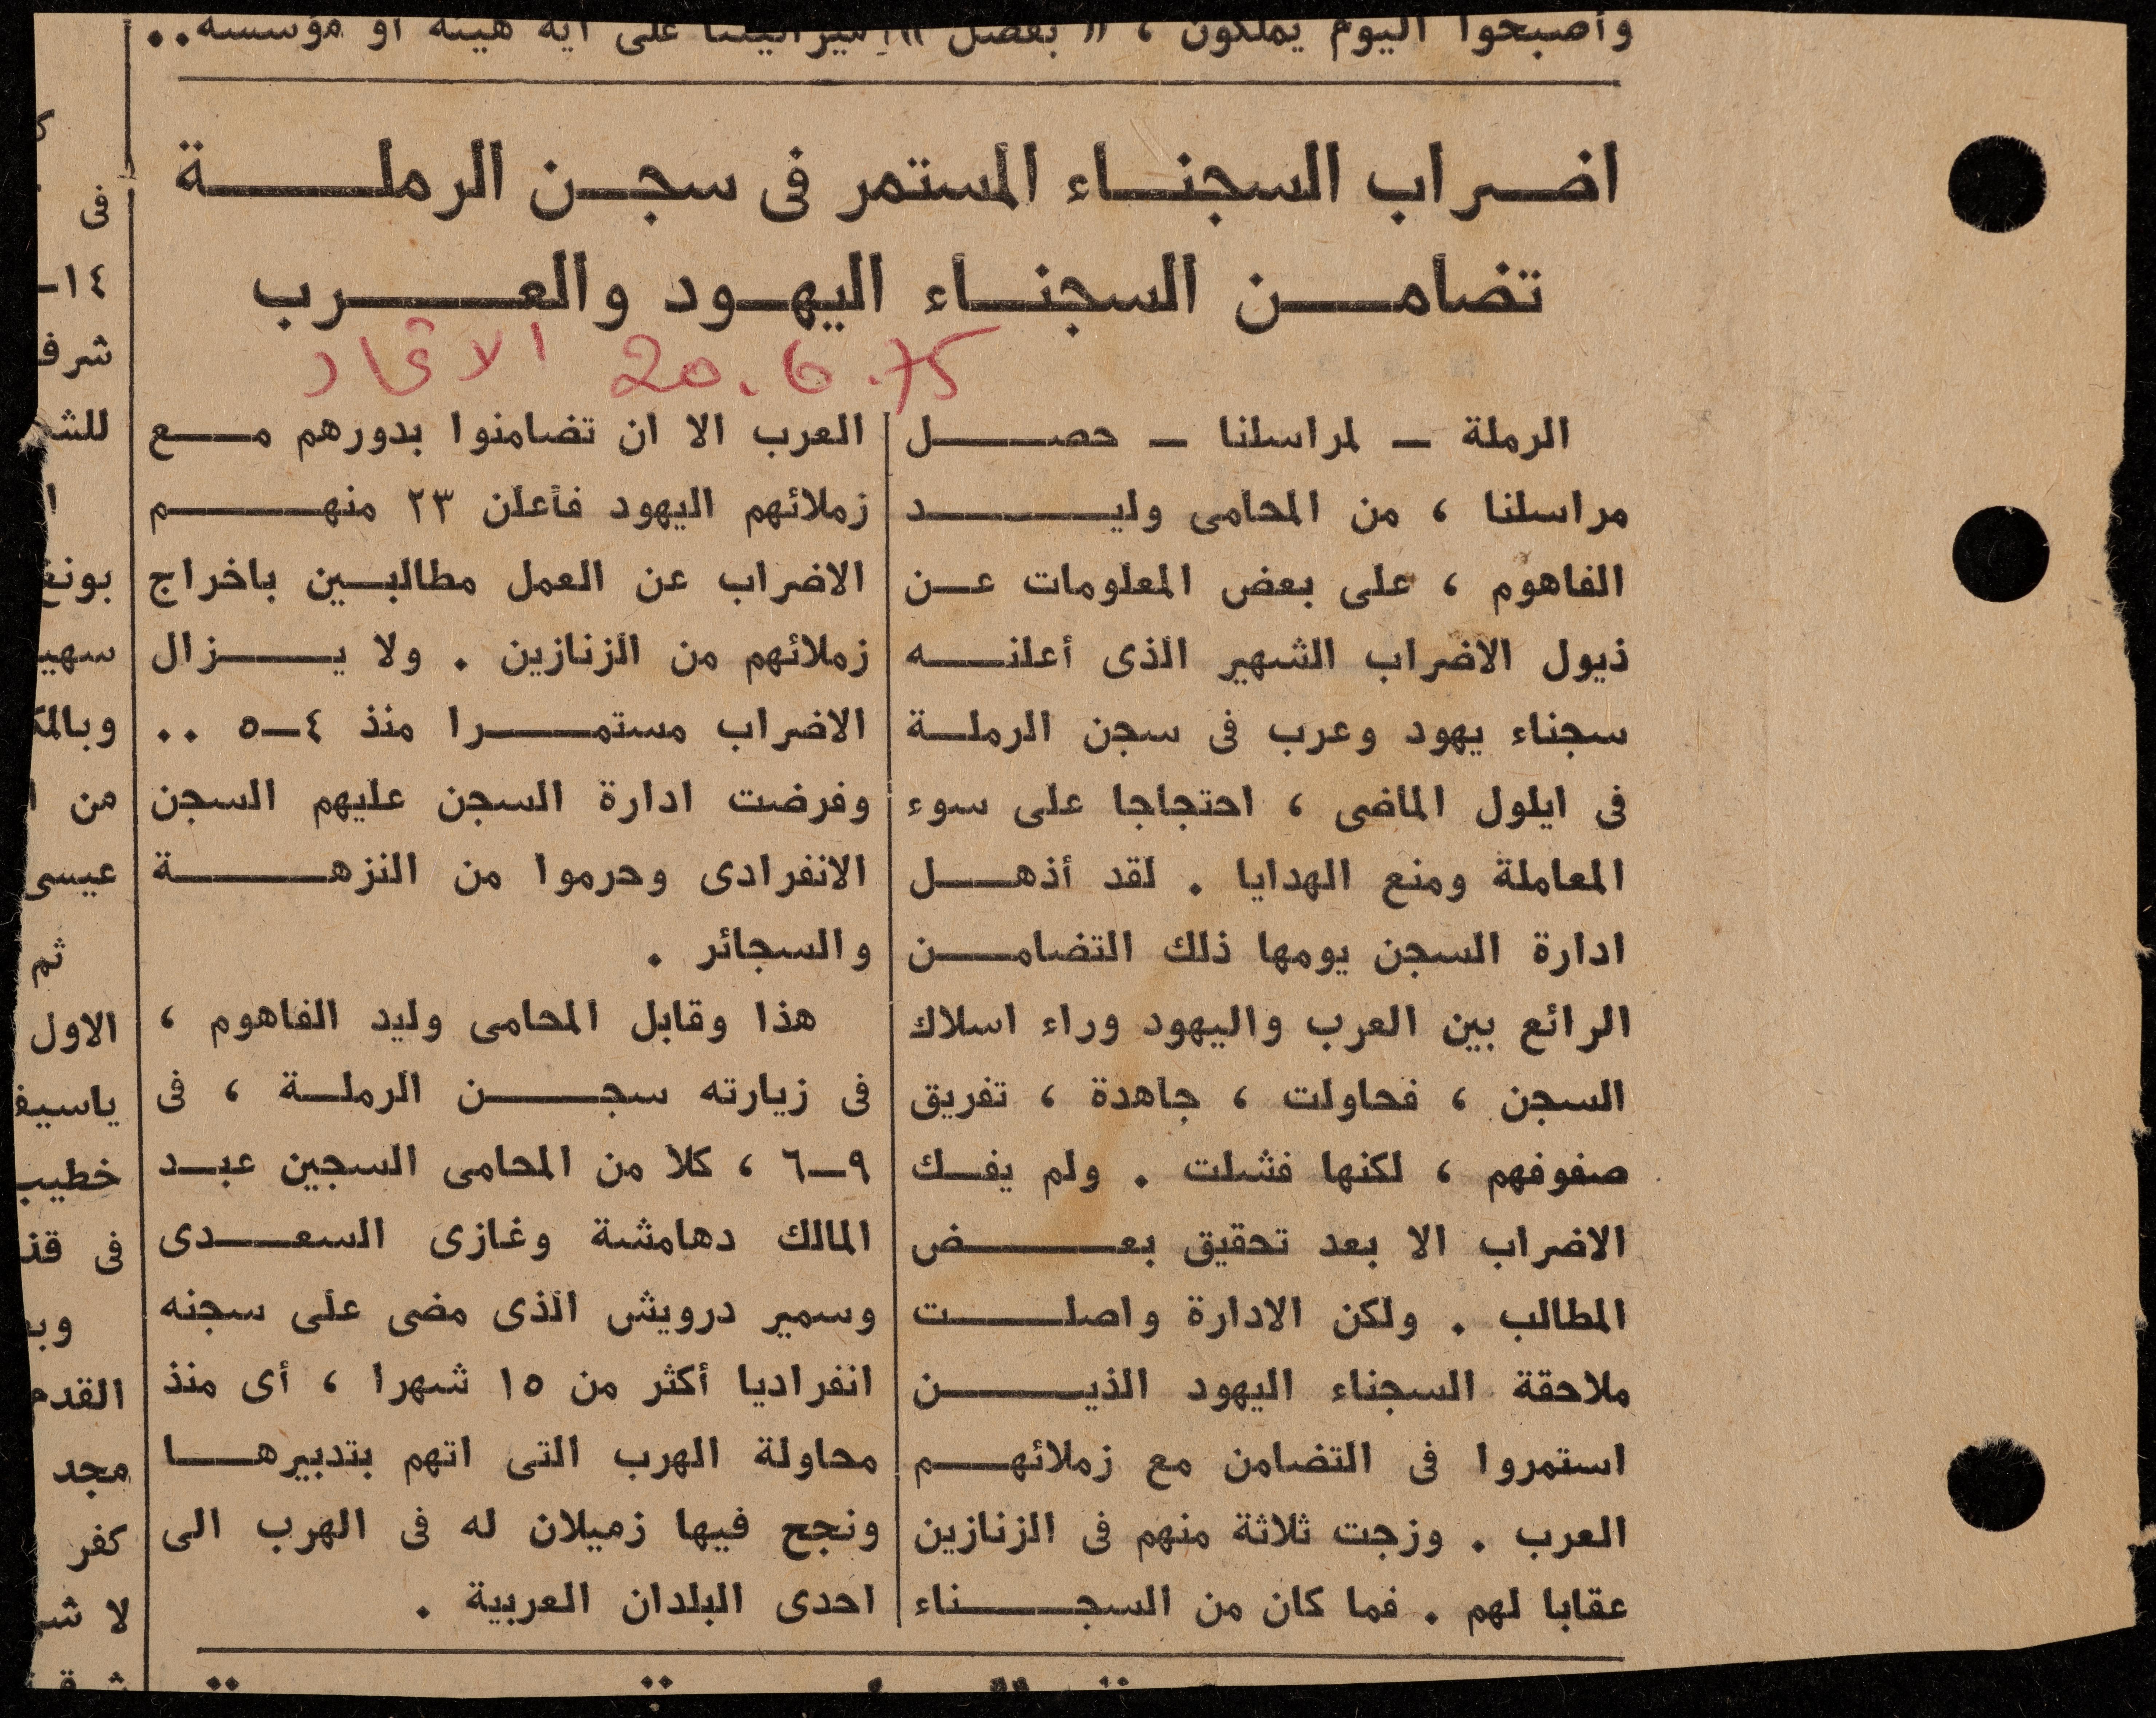 وأصبحوا اليوم يملكون ، « بفضل » على أية هيئة أو مؤسسة..
اضراب السجناء المستمر فى سجن الرملة
تضامن السجناء اليهود والعرب
الاتحاد 20.6.75
الرملة – لمراسلنا – حصل
مراسلنا ، من المحامى وليد
الفاهوم ، على بعض المعلومات عن
ذيول الاضراب الشهير الذى أعلنه
سجناء يهود وعرب فى سجن الرملة
فى ايلول الماضى ، احتجاجا على سوء
المعاملة ومنع الهدايا . لقد أذهل
ادارة السجن يومها ذلك التضامن
الرائع بين العرب واليهود وراء اسلاك
السجن ، فحاولت ، جاهدة ، تفريق
صفوفهم ، لكنها فشلت . ولم يفك
الاضراب الا بعد تحقيق بعض
المطالب . ولكن الادارة واصلت
ملاحقة السجناء اليهود الذين
استمروا فى التضامن مع زملائهم
العرب . وزجت ثلاثة منهم فى الزنازين
عقابا لهم . فما كان من السجناء
العرب الا ان تضامنوا بدورهم مع
زملائهم اليهود فأعلن ٢٣ منهم
الاضراب عن العمل مطالبين باخراج
زملائهم من الزنازين . ولا يزال
الاضراب مستمرا منذ ٤–٥ ..
وفرضت ادارة السجن عليهم السجن
الانفرادى وحرموا من النزهة
والسجائر .
هذا وقابل المحامى وليد الفاهوم ،
فى زيارته سجن الرملة ، فى
٩–٦ ، كلا من المحامى السجين عبد
المالك دهامشة وغازى السعدى
وسمير درويش الذى مضى على سجنه
انفراديا أكثر من ١٥ شهرا ، أى منذ
محاولة الهرب التى اتهم بتدبيرها
ونجح فيها زميلان له فى الهرب الى
احدى البلدان العربية .
فى
١٤–
شرف
للش
بونغ
سهي
وبالمك
من ا
عيسى
ثم
الاول
ياسيف
خطيب
فى قذ
وبع
القدم
مجد
كفر
لا شـ